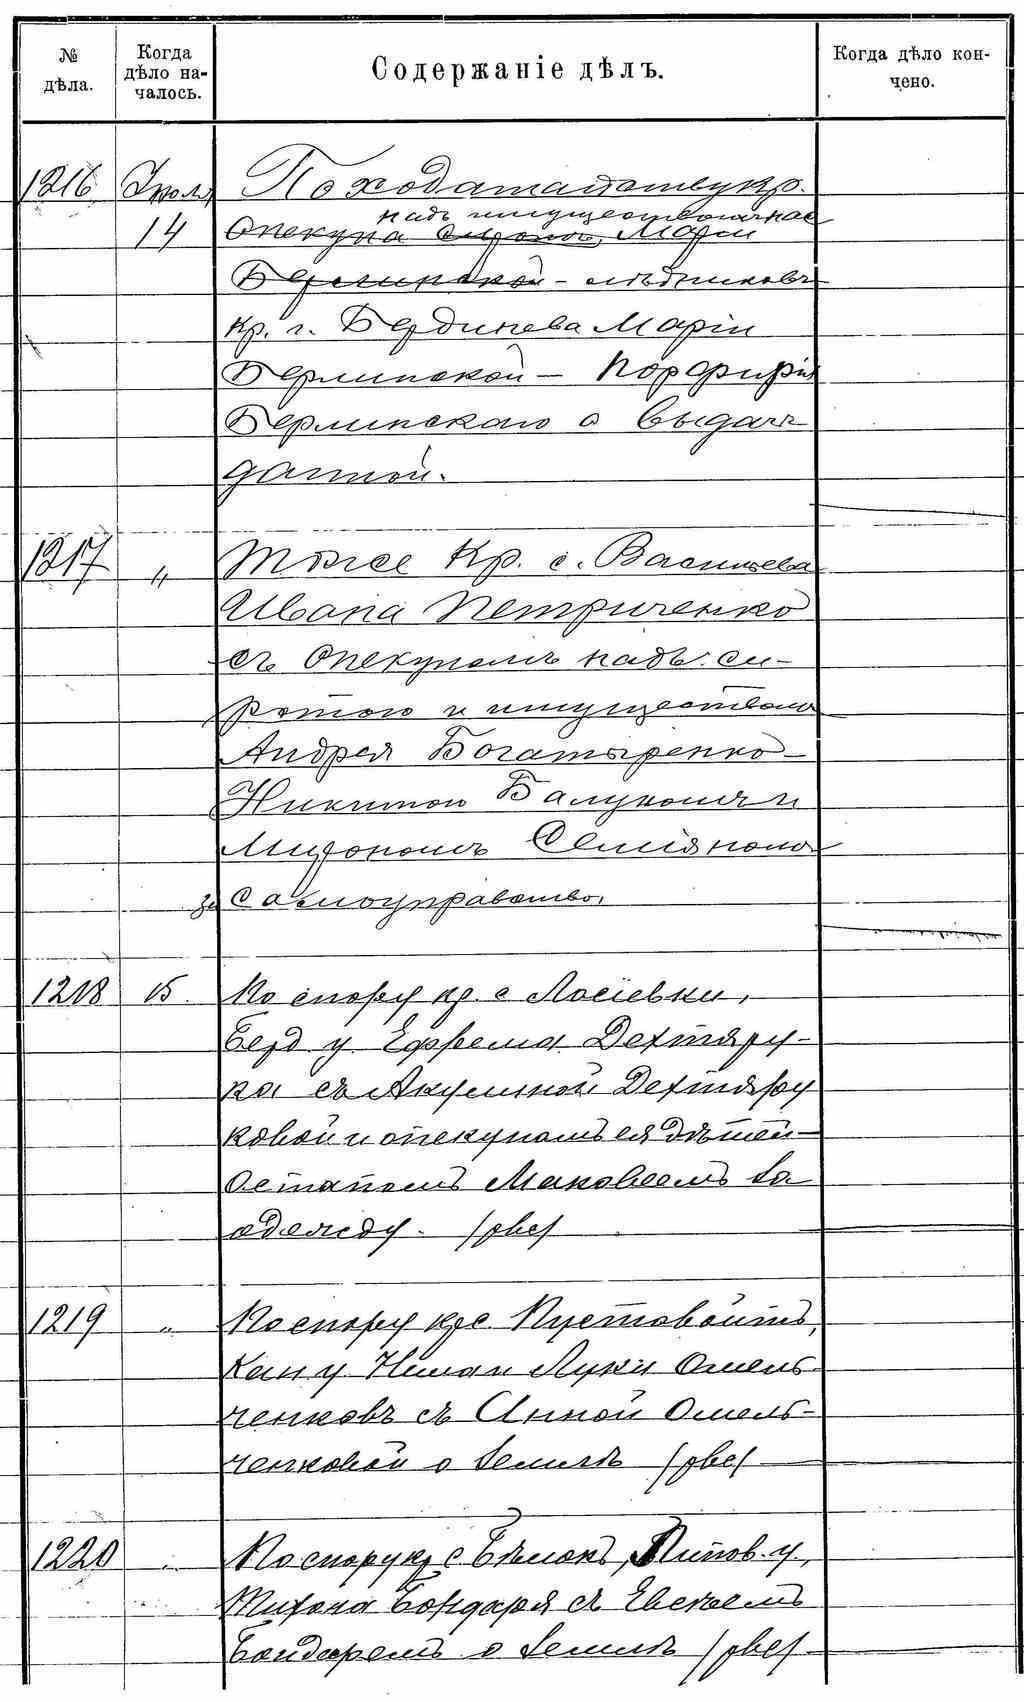 № дѣла.
Когда дѣло на-
чалось.
Содержаніе дѣлъ.
Когда дѣло кон-
чено.
1216 Іюля По ходатайству кр.
14 надъ имуществом нас
Опекуна Маріи
Берлинской - слѣдниковъ
кр. г. Бердичева Маріи
Берлинской - Порфирія
Берлинскаго о выдачѣ
данной.
1217 " Тоже Кр. с. Васильева
Ивана Петриченко
съ Опекуномъ надъ си-
ротою и имуществомъ
Андрея Богатыренко-
Никитою и
Мирономъ
за самоуправство.
1218 15. По спору кр. с Лосіевки,
Берд у. Ефрема Дехтяру-
ка съ Акулиной Дехтяру
ковой и опекуномъ ея дѣтей-
Остапомъ Маковеемъ за
одежду. /рве/
1219 " По спору кр с. Пустовойтъ,
Кан у. Луки Омель
ченковъ съ Анной Омель-
ченковой о землѣ /рве/
1220 " По спору кр с Бѣлокъ, Липов. у.,
Тихона Бондаря съ Евсеемъ
Бондаремъ о землѣ /рве/